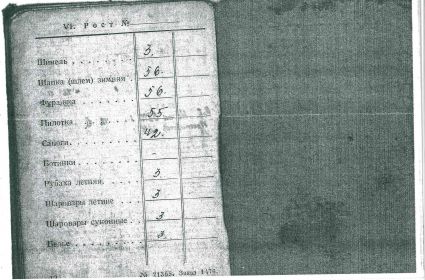 VI. Рост №
Шинель 3.
Шапка (шлем) зимняя 56.
Фуражка 56.
Пилотка 55.
Сапоги 42.
Ботинки
Рубаха летняя 3
Шаровары летние 3
Шаровары суконные 3
Белье 3
Заказ 1479.